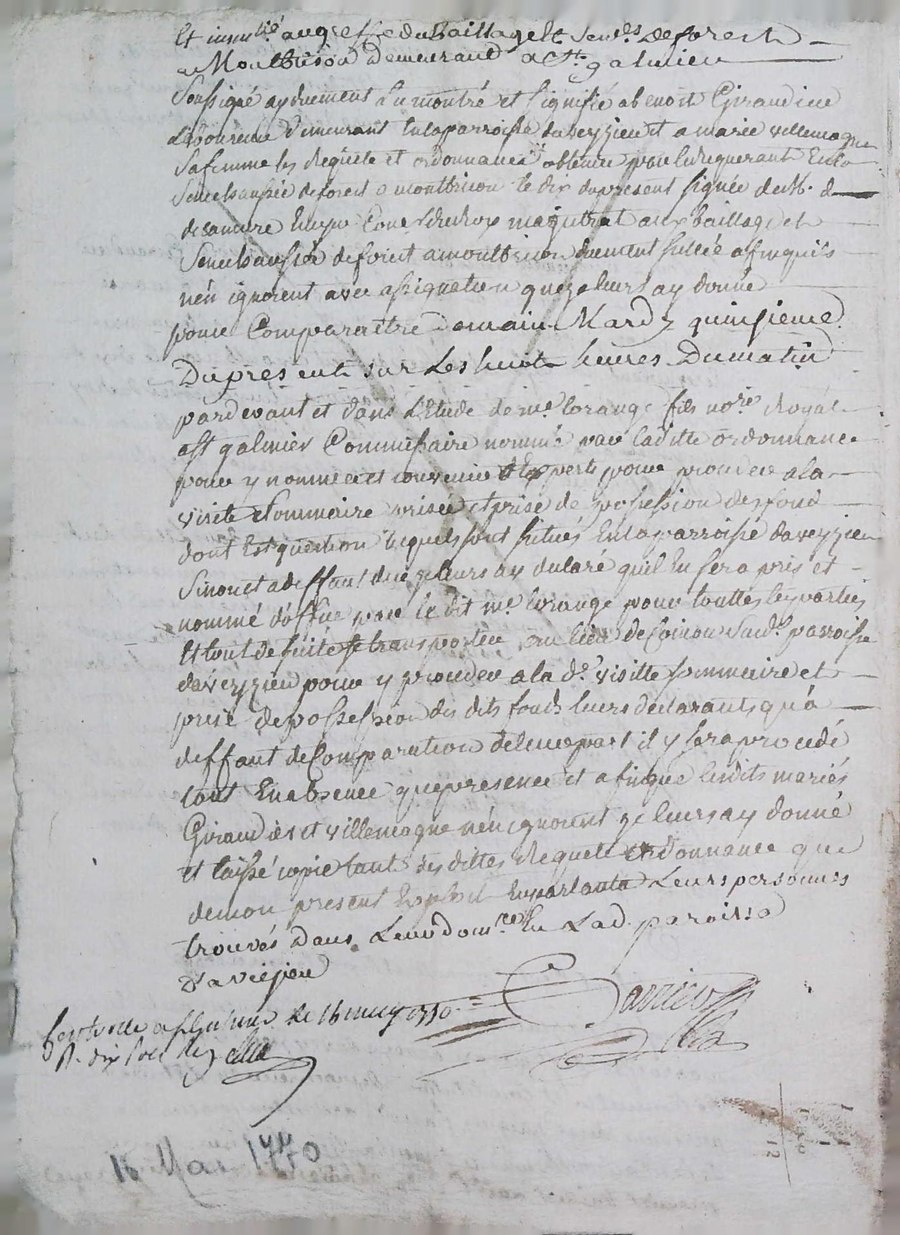 Et immlé au greffe du Baillage et Senéls de forest
a Montbrison Demeurant a St galmier
Soussigné ay duement Lu montré et signifié a benoit Giraudier
Laboureur demeurant En la parroisse daveyzieu et a marie vellemagne
Sa femme les Requete et ordonnance obtenue par le Requerant En la
Senechaussée de forest a montbrison le dix du present signée de M. d
desandre Ecuyer Coner du Roy magistrat aux baillage et
Senechaussée de forest a montbrison duement scellée afin qu'ils
n'en ignorent avec assignation que je leurs ay donné
pour Comparaitre Demain Mardy quinsieme
Du present sur Les huit heures Du matin
pardevant et dans L'Etude de me lorange fils nore Royal
a St galmier Commissaire nommé par laditte ordonnance
pour y nommer et convenir d'Experts pour proceder a la
visite Sommaire prisée et prise de possession des fond
dont Est question lequels sont situés En la parroisse daveyzieu
Sinon et a deffaut de ce je leurs ay declaré quil En sera pris et
nommé d'office par le dit me lorange pour touttes les parties
Et tout de suite se transporter au lieu de Coinou Susd. parroisse
daveyzieu pour y proceder a la de visitte sommaire et
prise de possession des dits fonds leurs declarant qu'a
deffaut de Comparation de leur part il y sera procedé
tant En absence que presence et afin que lesdits mariés
Giraudier et villemagne n'en ignorent je leurs ay donné
et laissé copie tant des dittes Requete Ordonnance que
de mon present Exploit En parlant a Leurs personnes
trouvés Dans Leur domce En Lad. paroisse
D'avézieu
Barrieu
Controllé a St Galmier le 16 may 1770
R. dix sols
15 Mai 1770